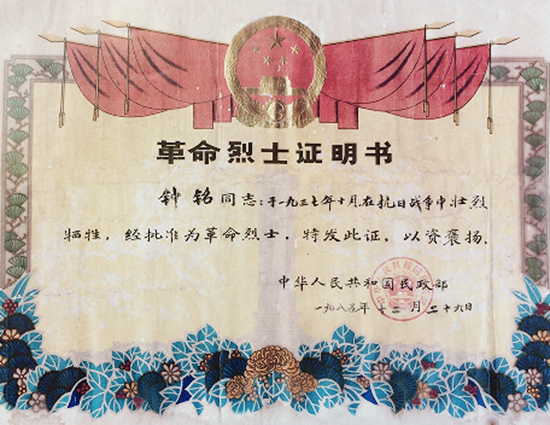 革命烈士证明书
钟铭同志：于一九三七年十月在抗日战争中壮烈
牺牲，经批准为革命烈士．特发此证，以资褒扬．
中华人民共和国民政部
一九八三年十二月二十九日